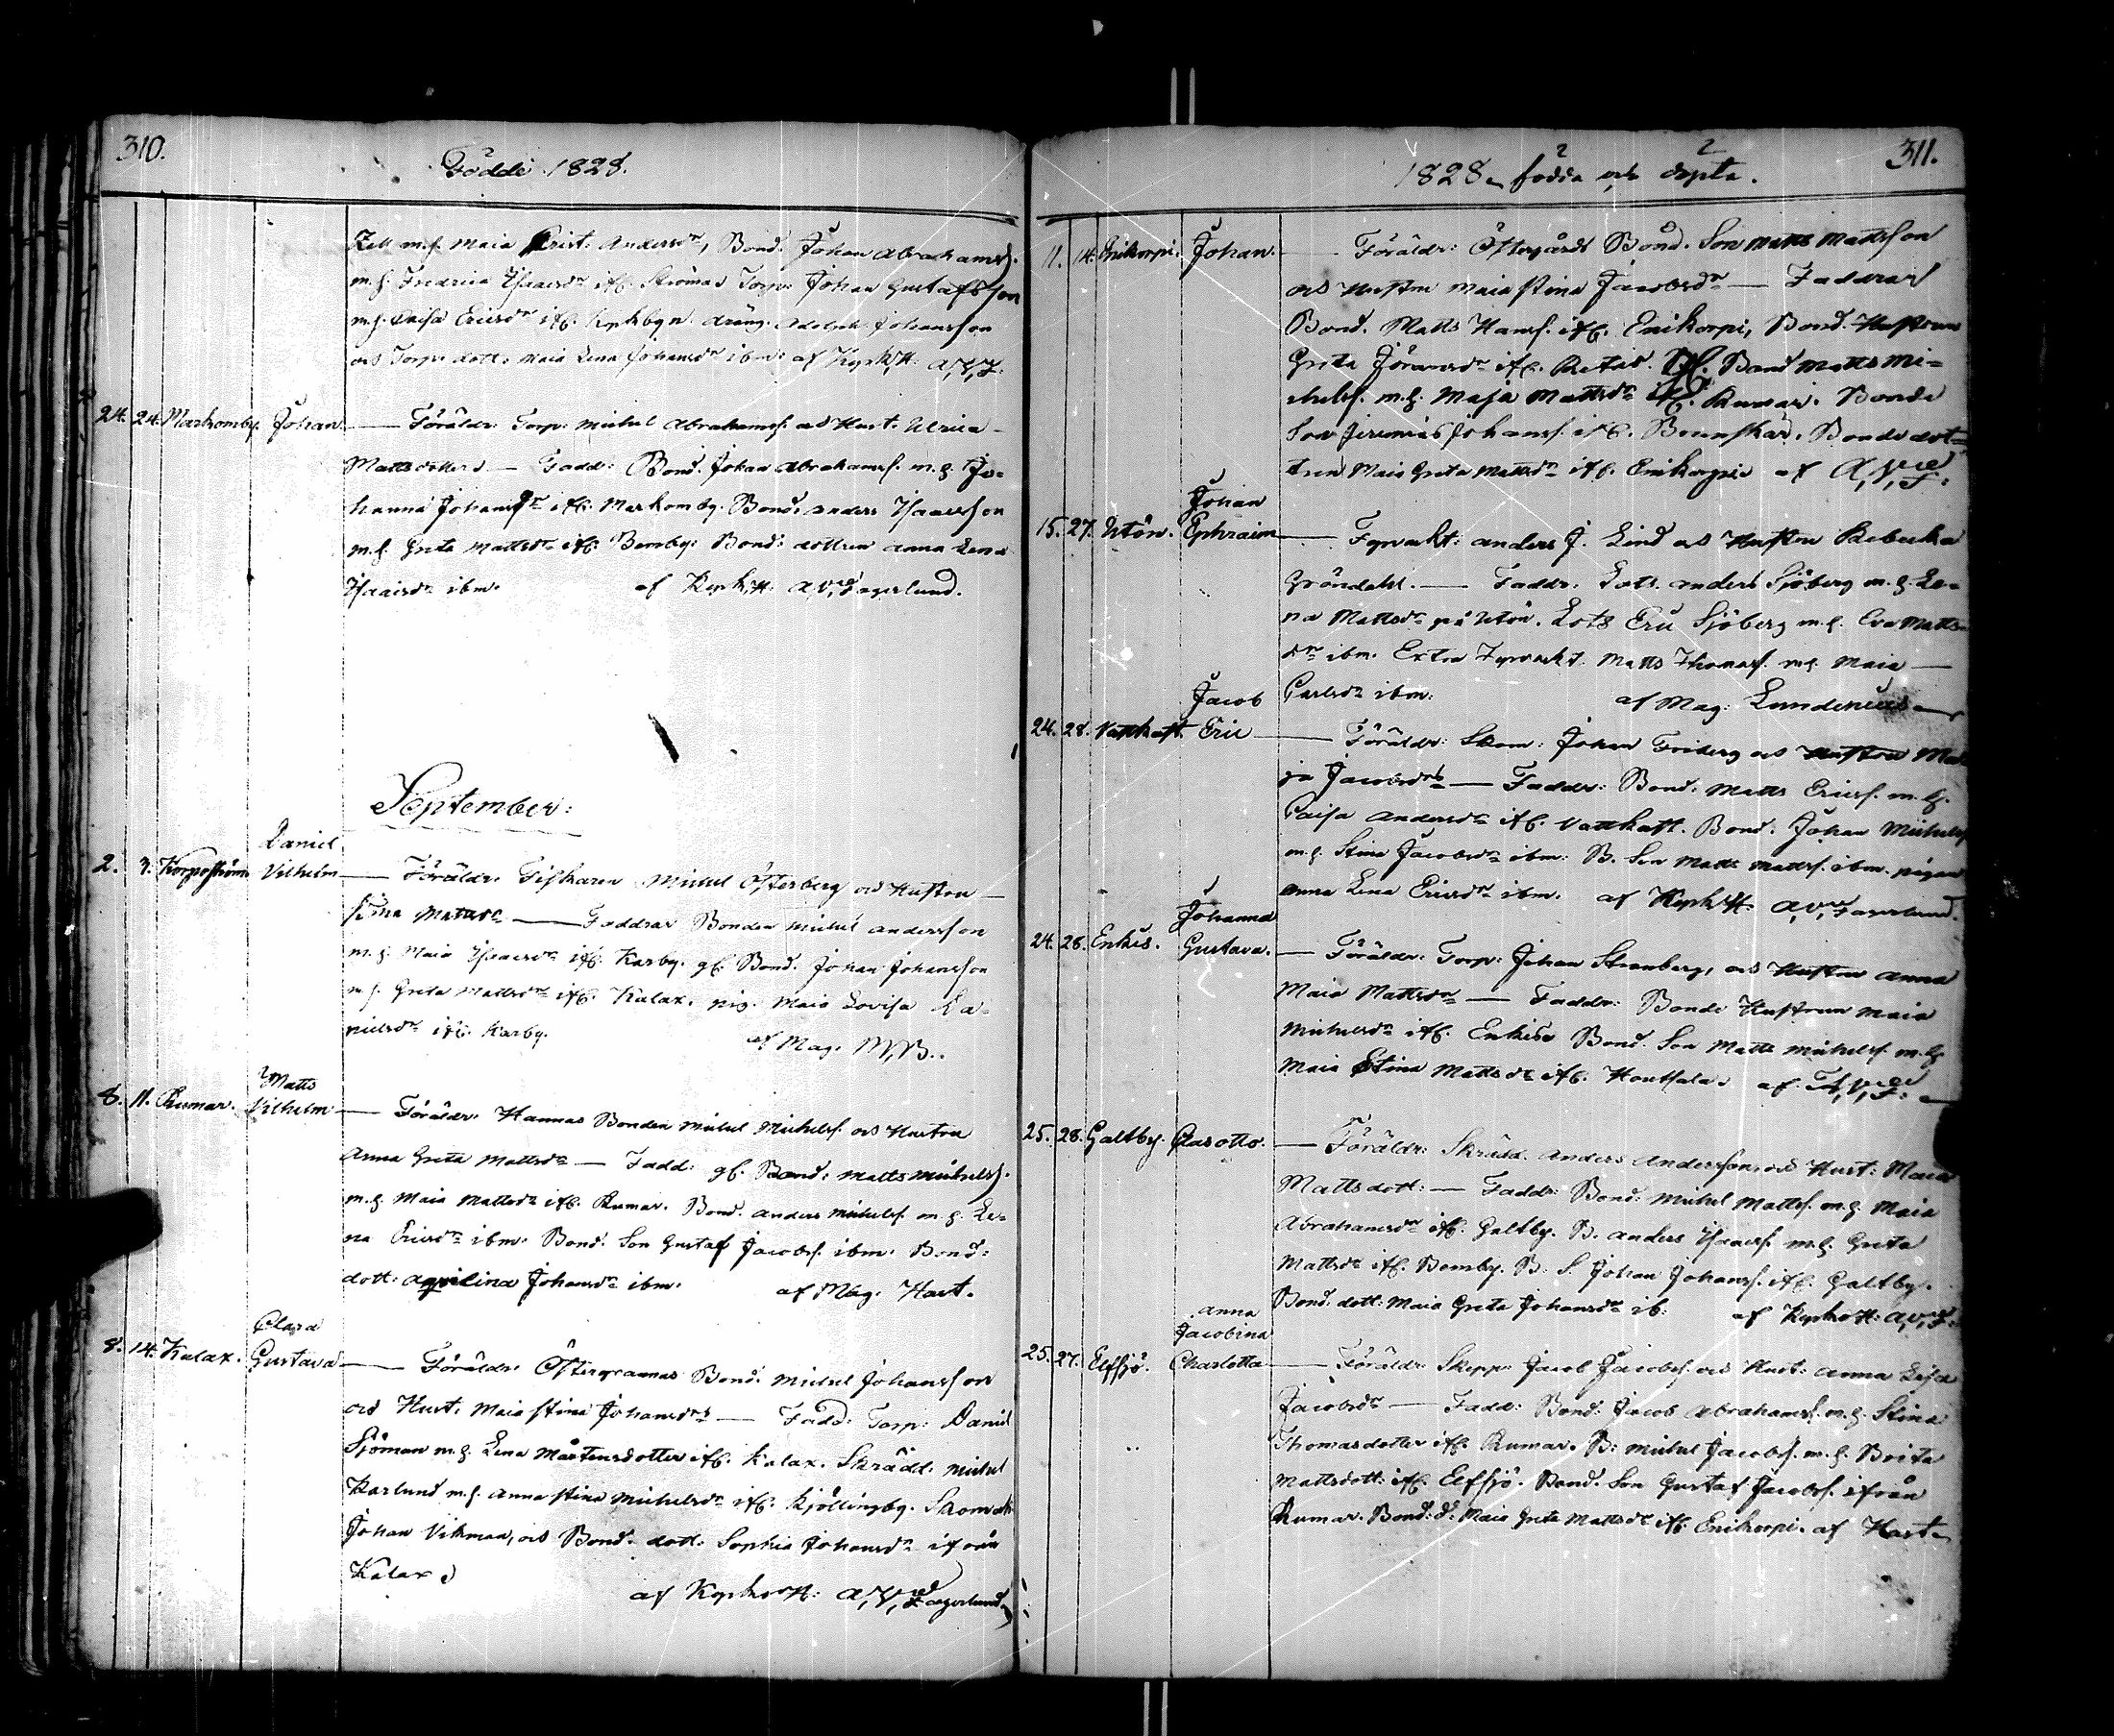 310.
Födde 1828.
Zell m.h. Maia Crist. Andersdr, Bond. Johan Abrahamss.
m.h. Fredrica Isaacsdr ifr. Strömas Torp. Johan Gustafsson
m.h. Caisa Ericsdr ifr. Kyrkbyn. dräng. Adolph Johansson
och Torp. dott. Maia Lena Johansdr ibm: af Kyrkh. A.V.F.
24. 24. Markomby. Johan — Föräldr. Torp. Michel Abrahamss. och Hust. Ulrica
Mattsdotter. — Fadd: Bond. Johan Abrahamss. m.h. Jo-
hanna Johansdr ifr. Markomby. Bond. Anders Isaacsson
m.h. Greta Mattsdr ifr. Bemby: Bond: dottren Anna Lena
Isaacsdr ibm. af Kyrkh. A.V. Fagerlund.
September:
Daniel
2. 3. Korpoström Vilhelm — Föräldr. Fiskaren Michel Österberg och Hustru
Stina Matsdr — Faddrar Bonden Michel Andersson
m.h. Maia Isaacsdr ifr. Karby. gl. Bond. Johan Johansson
m.h. Greta Mattsdr ifr. Kalax. pig. Maia Lovisa Da-
nielsdr ifr. Karby. af Mag.
Matts
8. 11. Rumar. Vilhelm — Föräldr. Hannas Bonden Michel Michelss. och Hustru
Anna Greta Mattsdr — Fadd: gl. Bond: Matts Michelss.
m.h. Maia Mattsdr ifr. Rumar. Bond. Anders Michelss. m.h. Le-
na Ericsdr ibm. Bond. Son Gustaf Jacobss. ibm. Bond:
dott: Aqvilina Johansdr ibm. af Mag. Hast.
Clara
8. 14. Kalax. Gustava — Föräldr. Bond. Michel Johansson
och Hust. Maia Stina Johansdr — Fadd. Torp: Daniel
Sjöman m.h. Lena Mårtensdotter ifr. Kalax. Skrädd. Michel
Karlund m.h. Anna Stina Michelsdr ifr. Kjöllingby. Skomak
Johan Vikman, och Bond. dott. Sophia Johansdr ifrån
Kalax.
af Kyrkoh: A.V. Fagerlund
311.
1828 födda och döpta.
11. 14. Enikorpi. Johan. — Föräldr: Östergårds Bond. Son Matts Mattsson
och Hustru Maia Stina Jacobsdr — Faddrar
Bond. Matts Hanss. ifr. Enikorpi, Bond. Hustrun
Greta Göransdr ifr. Retais. Bond Matts Mi-
chelss. m.h. Maja Mattsdr ifr. Rumar. Bonde
Son Jeremias Johanss. ifr. Brunskär. Bondedot-
tren Maia Greta Mattsdr ifr. Enikorpi af A.V.F.
Johan
15. 27. Utön. Ephraim — Fyrvakt: Anders J. Lind och Hustru Rebecka
Gröndahl. — Faddr. Lots. Anders Sjöberg m.h. Le-
na Mattsdr på Utön. Lots Eric Sjöberg m.h. Eva Matts
dr ibm. Extra Fyrvakt. Matts Thomass. m.h. Maia
Carlsdr ibm: af Mag: Lundenius
Jacob
24. 28. Vattkast. Eric — Föräldr: Skom: Johan Friberg och Hustru Ma
ja Jacobsdr — Faddr: Bond. Matts Ericss. m.h.
Caisa Andersdr ifr. Vattkast. Bond: Johan Michelss
m.h. Stina Jacobsdr ibm: B. Son Matts Mattss. ibm. pigan
Anna Lena Ericsdr ibm. af Kyrkh. A.V. Fagerlund.
Johanna
24. 28. Enkis. Gustava. — Föräldr. Torp: Johan Strandberg, och Hustru Anna
Maia Mattsdr — Faddr: Bonde Hustrun Maia
Michelsdr ifr. Enkis Bond. Son Matts Michelss. m.h.
Maia Stina Mattsdr ifr. Houtsala. af A.V.F.
25. 28. Galtby. Clas Otto. — Föräldr: Skrädd. Anders Andersson och Hust: Maia
Mattsdott: — Faddr: Bond: Michel Mattss. m.h. Maia
Abrahamsdr ifr. Galtby. B. Anders Isaacss. m.h. Greta
Mattsdr ifr. Bemby. B. S. Johan Johanss. ifr. Galtby.
Bond. dott: Maia Greta Johansdr ib. af Kyrkoh: A.V.F.
Anna
Jacobina
25. 27. Elfsjö. Charlotta — Föräldr: Skepp. Jacob Jacobss. och Hust: Anna Lisa
Jacobsdr — Fadd: Bond. Jacob Abrahamss. m.h. Stina
Thomasdotter ifr. Rumar. B: Michel Jacobss. m.h. Brita
Mattsdott: ifr. Elfsjö. Bond. Son Gustaf Jacobss. ifrån
Rumar. Bond: d: Maia Greta Mattsdr ifr. Enikorpi. af Hast